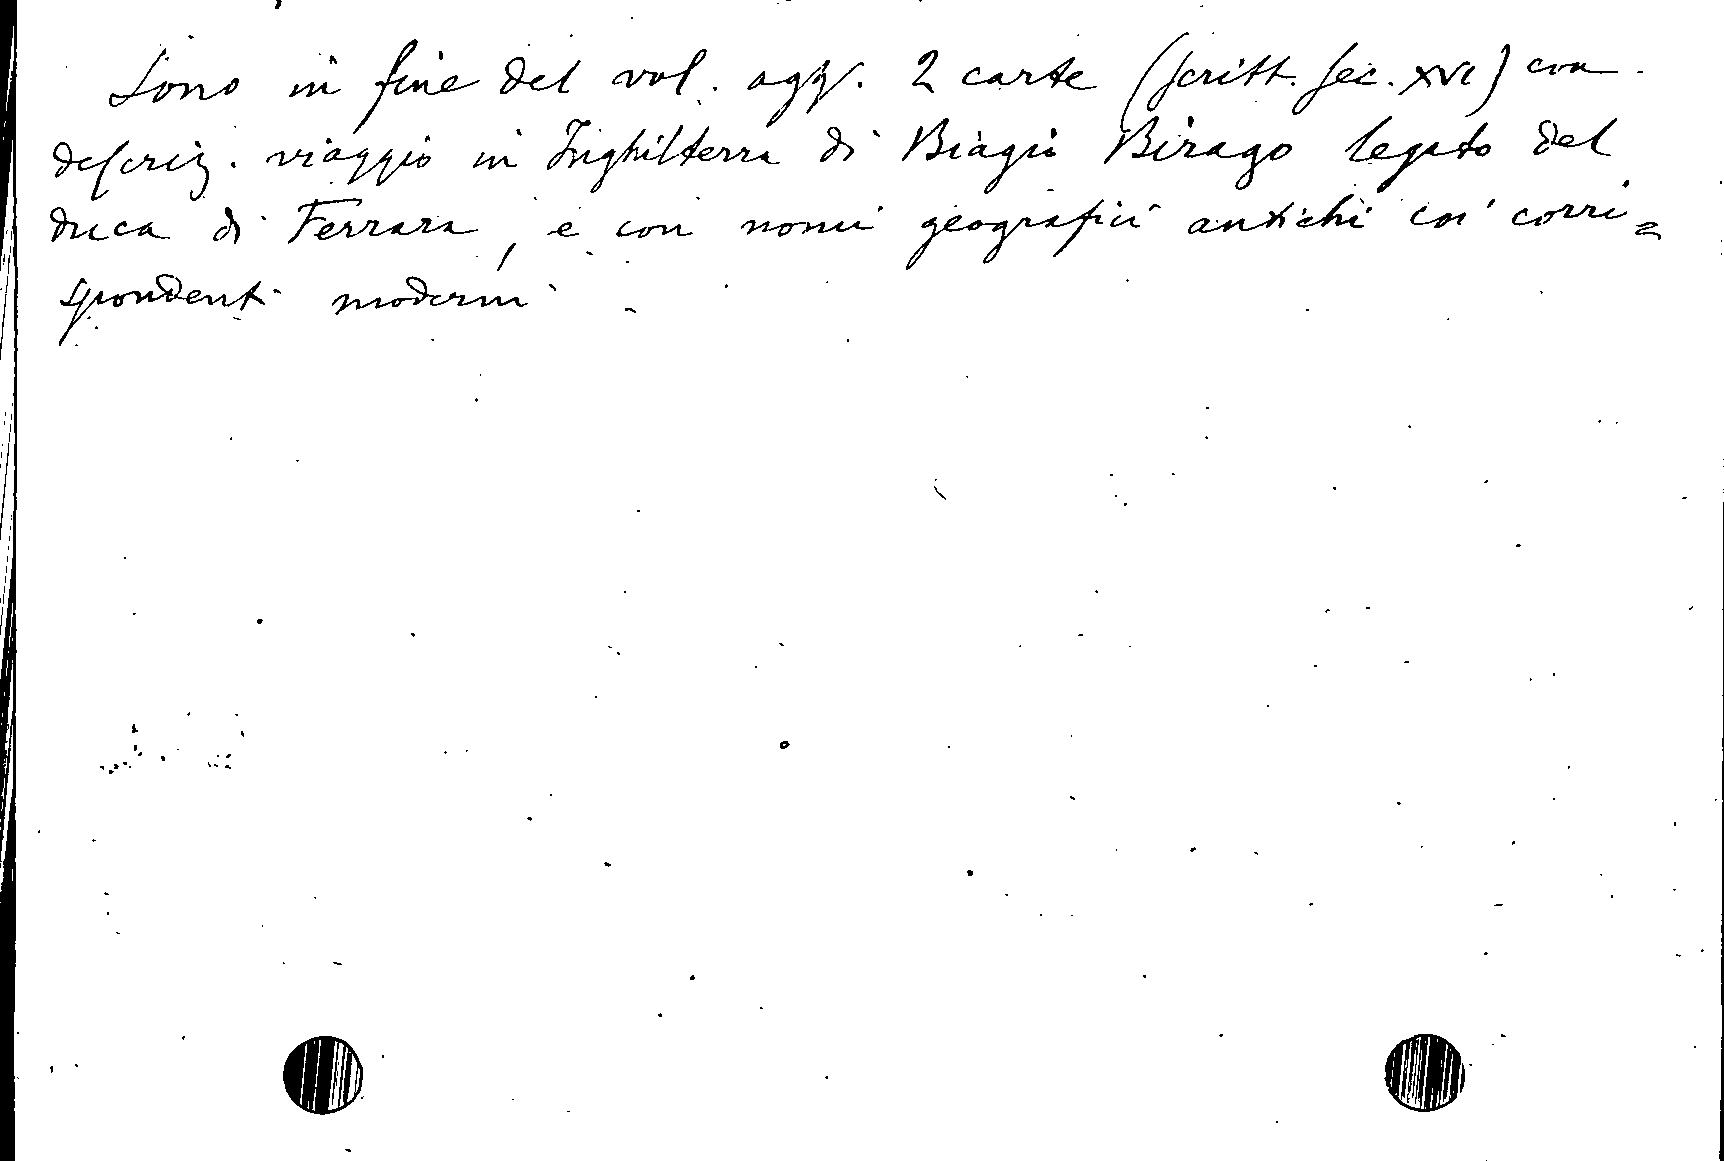 Sono in fine del vol. agg. 2 carte (scritt. sec. XVI) con
descriz. viaggio in Inghilterra di Biagio Birago legato del
duca di Ferrara, e con nomi geografici antichi coi corri=
spondenti moderni